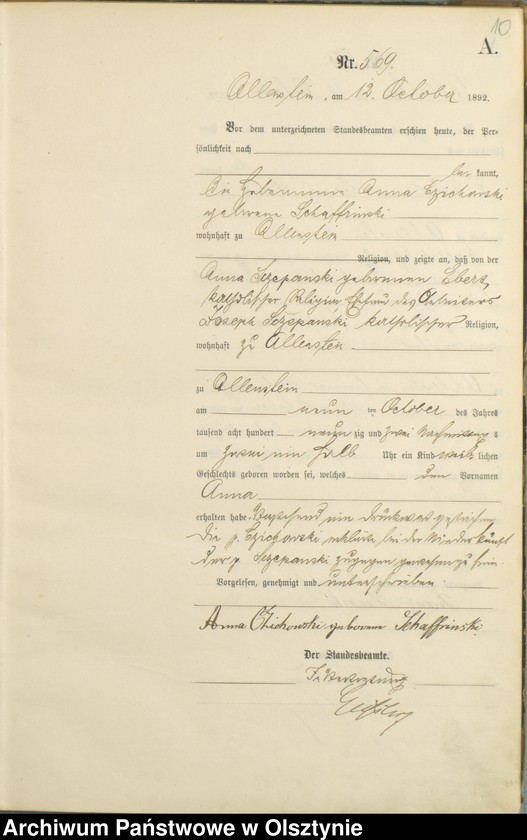 10
A.
Nr. 569.
Allenstein, am 12. October 1892.
Vor dem unterzeichneten Standesbeamten erschien heute, der Per-
sönlichkeit nach
be kannt,
die Hebeamme Anna Czichowski
geborene Schaffrinski
wohnhaft zu Allenstein
Religion, und zeigte an, daß von der
Anna Sczepanski geborenen Ebert,
katholischer Religion, Ehefrau des
Joseph Sczepanski katholischer Religion,
wohnhaft zu Allenstein
zu Allenstein
am neun ten October des Jahres
tausend acht hundert neun zig und zwei Nachmittags
um zwei ein halb Uhr ein Kind weib lichen
Geschlechts geboren worden sei, welches den Vornamen
Anna
erhalten habe. Vorstehend ein Druckwort gestrichen
die p. Czichowski erklärte bei der Niederkunft
der p. Sczepanski zugegen gewesen zu sein.
Vorgelesen, genehmigt und unterschrieben.
Anna Czichowski geborene Schaffrinski.
Der Standesbeamte.
In Vertretung
Archiwum Państwowe w Olsztynie